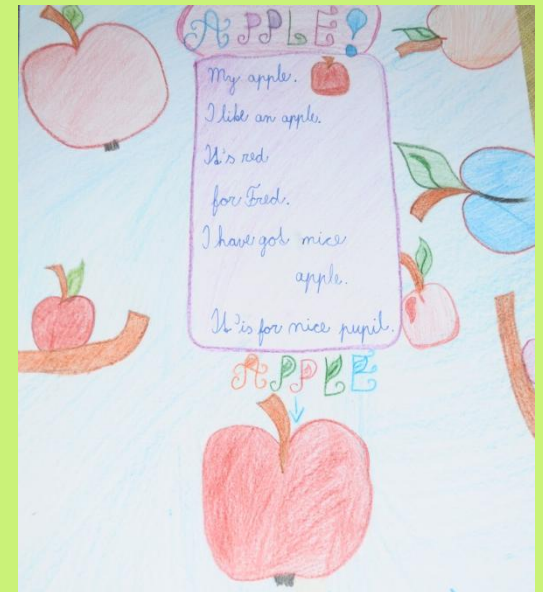 APPLE!
My apple.
I like an apple.
It's red
for Fred.
I have got nice
apple.
It'is for nice pupil.
APPLE